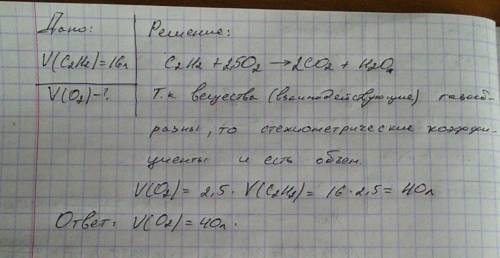 Дано:
V(C2H2)=16л
V(O2)-?
Решение:
C2H2 + 2,5O2 → 2CO2 + H2O
Т.к вещества (взаимодействующие) газооб-
разны, то стехиометрические коэффи-
циенты и есть объем.
V(O2) = 2,5 · V(C2H2) = 16 · 2,5 = 40л
Ответ: V(O2) = 40л.